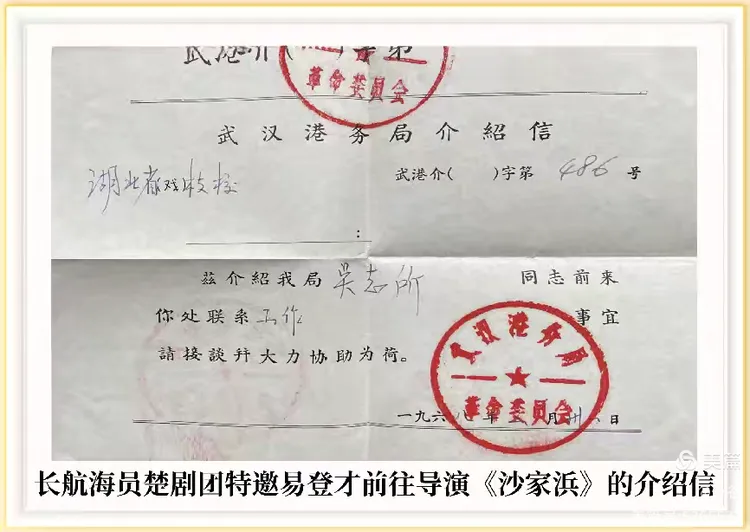 武港介( )字第
革命委员会
武汉港务局介紹信
湖北省戏校
武港介( )字第 486 号
:
兹介紹我局 吴志所 同志前来
你处联系 工作 事宜
請接談幷大力协助为荷。
武汉港务局
革命委员会
一九六八年 月廿 日
长航海员楚剧团特邀易登才前往导演《沙家浜》的介绍信
美篇